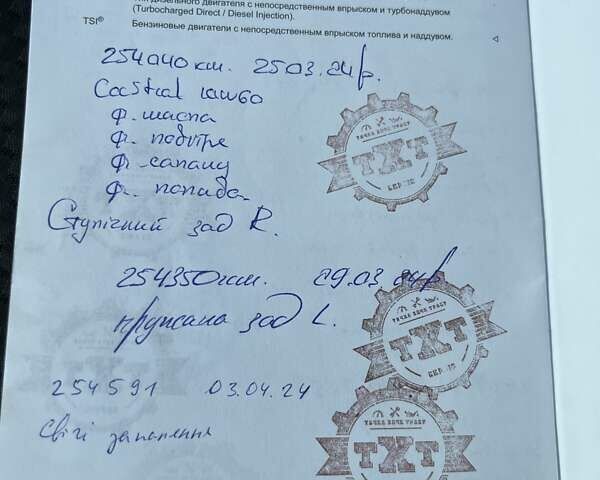 дизельного двигателя с непосредственным впрыском и турбонаддувом
(Turbocharged Direct / Diesel Injection).
TSI® Бензиновые двигатели с непосредственным впрыском топлива и наддувом.
254040 км. 25.03.24р.
Castrol 10w60
ф. масла
ф. повітре
ф. салану
ф. полива
Ступічний зад R.
254350 км. 29.03.24р
пружана зад L.
254591 03.04.24
Свічі запалення
ТХТ
ТАЧКА ХОЧЕ ТРАСУ
ТХТ
ТАЧКА ХОЧЕ ТРАСУ
ТХТ